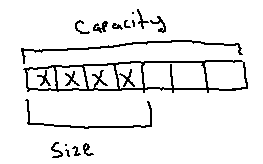 Capacity
X X X X
Size